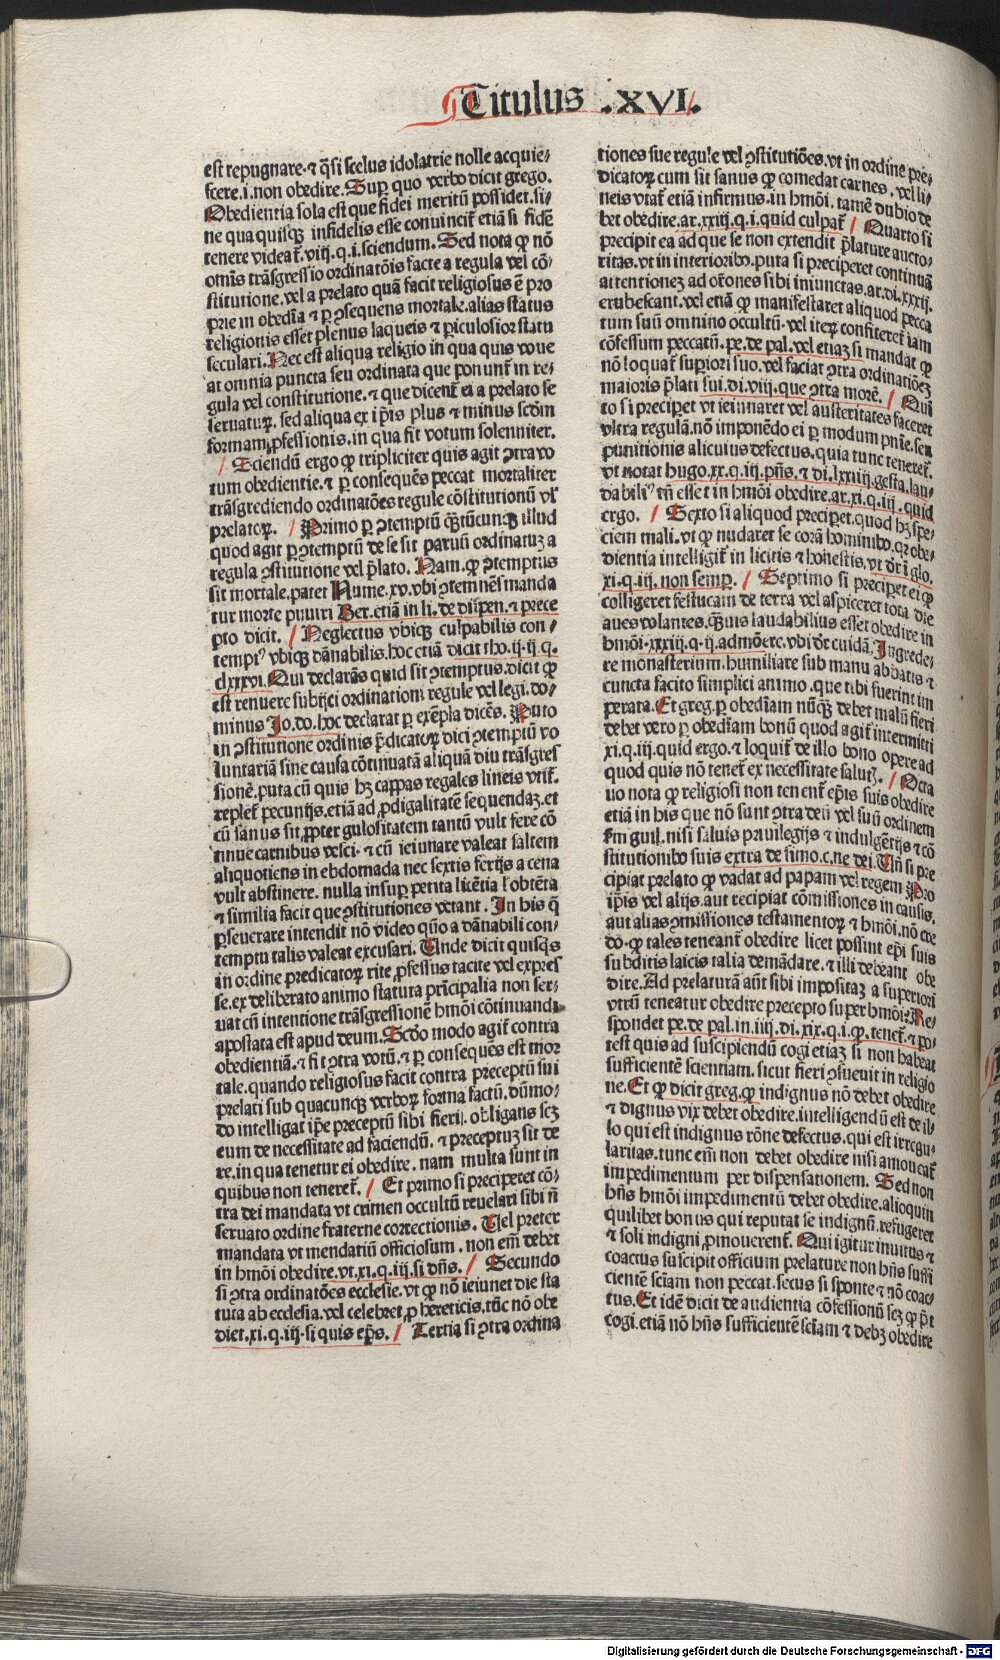 Titulus .XVI.
est repugnare. ⁊ q̄si scelus idolatrie nolle acquie⸗
scere .i. non obedire. Sup quo verbo dicit grego.
Obedientia sola est que fidei meritū possidet. si⸗
ne qua quisqꝫ infidelis esse conuincit᷑ etiā si fidē
tenere videat᷑. viij. q. i. sciendum. Sed nota ꝙ nō
omīs trāsgressio ordinatōis facte a regula vel cō⸗
stitutione. vel a prelato quā facit religiosus ē pro
prie in obedīa ⁊ ꝑ ꝯsequens mortale. alias status
religionis esset plenus laqueis ⁊ ꝑiculosior statu
seculari. Nec est aliqua religio in qua quis voue
at omnia puncta seu ordinata que ponunt᷑ in re⸗
gula vel constitutione. ⁊ que dicent᷑ ei a prelato se
seruaturꝫ. sed aliqua ex ip̄is plus ⁊ minus scd̄m
formam ꝓfessionis. in qua fit votum solenniter.
/ Sciendū ergo ꝙ tripliciter quis agit ꝯtra vo
tum obedientie. ⁊ ꝑ consequēs peccat mortaliter
trāsgrediendo ordinatōes regule cōstitutionū vl̓
prelatoꝝ. / Primo ꝑ ꝯtemptū q̄ꝫtūcunqꝫ illud
quod agit ꝑ ꝯtemptū de se sit paruū ordinatuꝫ a
regula ꝯstitutione vel p̄lato. Nam. ꝙ ꝯtemptus
sit mortale. patet Nume. xv. vbi ꝯtemnēs manda
tur morte puniri Ber. etiā in li. de dispen. ⁊ prece
pto dicit. / Neglectus vbiqꝫ culpabilis con⸗
temptꝰ vbiqꝫ dānabilis. hoc etiā dicit tho. ij. ij. q.
clxxxvi. Qui declarās quid sit ꝯtemptus. dicit ꝙ
est renuere subijci ordinationi regule vel legi. do⸗
minus Jo. do. hoc declarat ꝑ exēpla dicēs. Puto
in ꝯstitutione ordinis p̄dicatoꝝ dici ꝯtemptū vo
luntariā sine causa cōtinuatā aliquā diu trāsgres
sionē. puta cū quis hꝫ cappas regales lineis vtit᷑.
replet᷑ pecunijs. etiā ad ꝓdigalitatē sequendaꝫ. et
cū sanus sit ꝓpter gulositatem tantū vult fere cō
tinue carnibus vesci. ⁊ cū ieiunare valeat saltem
aliquotiens in ebdomada nec sextis ferijs a cena
vult abstinere. nulla insuꝑ petita licētia l̓ obtēta
⁊ similia facit que ꝯstitutiones vetant. In his q̄
ꝑseuerare intendit nō video quō a dānabili con⸗
temptu talis valeat excusari. Unde dicit quisq̄s
in ordine predicatoꝝ rite ꝓfessus tacite vel expres
se. ex deliberato animo statuta prīcipalia non ser⸗
uat cū intentione trāsgressionē hmōi cōtinuandi
apostata est apud deum. Scd̓o modo agit᷑ contra
obedientiā. ⁊ fit ꝯtra votū. ⁊ ꝑ consequēs est mor
tale. quando religiosus facit contra preceptū sui
prelati sub quacunqꝫ verboꝝ forma factū. dūmo⸗
do intelligat ip̄e preceptū sibi fieri. obligans scꝫ
eum de necessitate ad faciendū. ⁊ preceptuꝫ sit de
re. in qua tenetur ei obedire. nam multa sunt in
quibus non teneret᷑. / Et primo si preciperet cō⸗
tra dei mandata vt crimen occultū reuelari sibi n̄
seruato ordine fraterne correctionis. Uel preter
mandata vt mendatiū officiosum. non em̄ debet
in hmōi obedire. vt. xi. q. iij. si dn̄s. / Secundo
si ꝯtra ordinatōes ecclesie. vt ꝙ nō ieiunet die sta
tuta ab ecclesia. vel celebret ꝓ hereticis. tūc nō obe
diet. xi. q. iij. si quis ep̄s. / Tertia si ꝯtra ordina
tiones sue regule vel ꝯstitutiōes. vt in ordine pre⸗
dicatoꝝ cum sit sanus ꝙ comedat carnes. vel li⸗
neis vtat᷑ etiā infirmus. in hmōi. tamē dubio de
bet obedire. ar. xxiij. q. i. quid culpat᷑ / Quarto si
precipit ea ad que se non extendit p̄lature aucto⸗
ritas. vt in interioribꝰ. puta si preciperet continuā
attentionez ad or̄ones sibi iniunctas. ar. di. xxxij.
erubescant. vel etiā ꝙ manifestaret aliquod pecca
tum suū omnino occultū. vel iteꝝ confiteret᷑ iam
cōfessum peccatū. pe. de pal. vel etiaꝫ si mandat ꝙ
nō loquat᷑ suꝑiori suo. vel faciat ꝯtra ordinatiōeꝫ
maioris p̄lati sui. di. viij. que ꝯtra morē. / Qui
to si precipet vt ieiunaret vel austeritates faceret
vltra regulā. nō imponēdo ei ꝑ modum pn̄ie. seu
punitionis alicuius defectus. quia tunc teneret᷑.
vt notat hugo. xx. q. iij. pn̄s. ⁊ di. lxxiiij. gesta. lau⸗
dabilꝰ tn̄ esset in hmōi obedire. ar. xi. q. iij. quid
ergo. / Sexto si aliquod precipet. quod hꝫ spe⸗
ciem mali. vt ꝙ nudaret se corā hominibꝰ. qꝛ obe⸗
dientia intelligit᷑ in licitis ⁊ honestis. vt dr̄ ī glo.
xi. q. iij. non semꝑ. / Septimo si precipet ei ꝙ
colligeret festucam de terra vel aspiceret tota die
aues volantes. q̄ꝫuis laudabilius esset obedire in
hmōi. xxiij. q. ij. admōere. vbi dr̄ cuidā. Ingrede⸗
re monasterium. humiliare sub manu abbatis ⁊
cuncta facito simplici animo. que tibi fuerint im
perata. Et greg. ꝑ obedīam nūqꝫ debet malū fieri
debet vero ꝑ obedīam bonū quod agit᷑ intermitti
xi. q. iij. quid ergo. ⁊ loquit᷑ de illo bono opere ad
quod quis nō tenet᷑ ex necessitate salutꝭ. / Octa
uo nota ꝙ religiosi non tenent᷑ ep̄is suis obedire
etiā in his que nō sunt ꝯtra deū vel suū ordinem
s̄m guil. nisi saluis priuilegijs ⁊ indulgētijs ⁊ cō
stitutionibꝰ suis extra de simo. c. ne dei. Un̄ si pre
cipiat prelato ꝙ vadat ad papam vel regem Pro
ip̄is vel alijs. aut recipiat cōmissiones in causis.
aut alias ꝯmissiones testamentoꝝ ⁊ hmōi. nō cre
do. ꝙ tales teneant᷑ obedire licet possint ep̄i suis
subditis laicis talia demādare. ⁊ illi debeant obe
dire. Ad prelaturā aūt sibi impositaꝫ a superiori
vtrū teneatur obedire precepto super hmōi? Re⸗
spondet pe. de pal. in. iiij. di. xix. q. i. ꝙ. tenet᷑. ⁊ po⸗
test quis ad suscipiendū cogi etiaꝫ si non habeat
sufficientē scientiam. sicut fieri ꝯsueuit in religio
ne. Et ꝙ dicit greg. ꝙ indignus nō debet obedire
⁊ dignus vix debet obedire. intelligendū est de il⸗
lo qui est indignus rōne defectus. qui est irregu⸗
laritas. tunc em̄ non debet obedire nisi amoueat᷑
impedimentum per dispensationem. Sed non
hn̄s hmōi impedimentū debet obedire. alioquin
quilibet bonus qui reputat se indignū. refugeret
⁊ soli indigni ꝓmouerent᷑. Qui igitur inuitus ⁊
coactus suscipit officium prelature non hn̄s suffi
cientē sciam non peccat. secus si sponte ⁊ nō coac⸗
tus. Et idē dicit de audientia cōfessionū scꝫ ꝙ p̄t
cogi. etiā nō hn̄s sufficientē sciam ⁊ debꝫ obedire
Digitalisierung gefördert durch die Deutsche Forschungsgemeinschaft - DFG